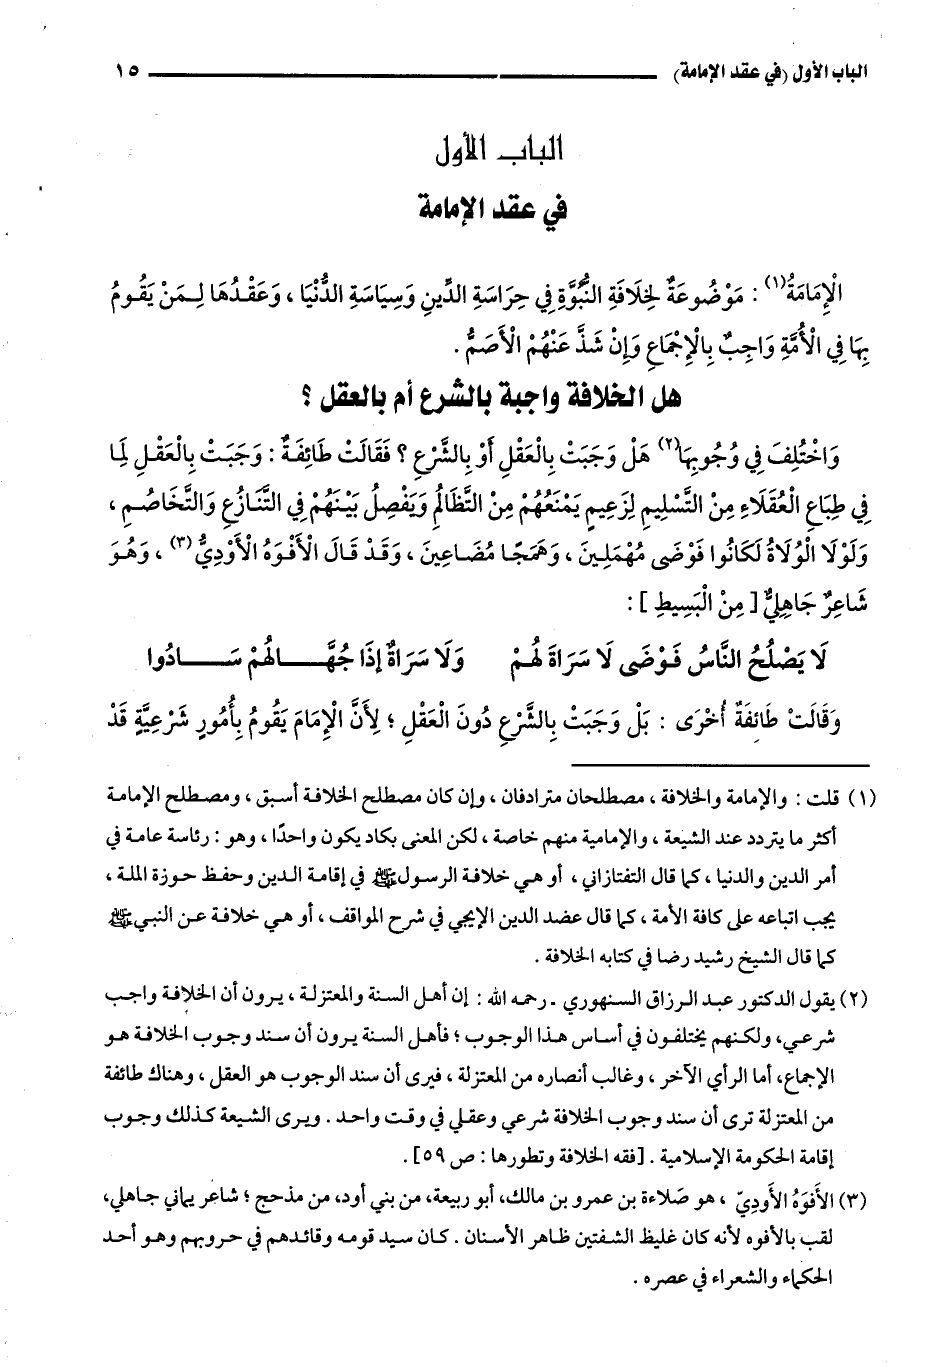 الباب الأول (في عقد الإمامة) ١٥
الباب الأول
في عقد الإمامة
الْإِمَامَةُ(١) : مَوْضُوعَةٌ لِخِلَافَةِ النُّبُوَّةِ فِي حِرَاسَةِ الدِّينِ وَسِيَاسَةِ الدُّنْيَا ، وَعَقْدُهَا لِـمَنْ يَقُومُ
بِهَا فِي الْأُمَّةِ وَاجِبٌ بِالْإِجْمَاعِ وَإِنْ شَذَّ عَنْهُمْ الْأَصَمُّ .
هل الخلافة واجبة بالشرع أم بالعقل ؟
وَاخْتُلِفَ فِي وُجُوبِهَا(٢) هَلْ وَجَبَتْ بِالْعَقْلِ أَوْ بِالشَّرْعِ ؟ فَقَالَتْ طَائِفَةٌ : وَجَبَتْ بِالْعَقْـلِ لِمَا
فِي طِبَاعِ الْعُقَلَاءِ مِنْ التَّسْلِيمِ لِزَعِيمٍ يَمْنَعُهُمْ مِنْ التَّظَالُمِ وَيَفْصِلُ بَيْنَهُمْ فِي التَّنَازُعِ وَالتَّخَاصُـمِ ،
وَلَوْلَا الْوُلَاةُ لَكَانُوا فَوْضَى مُهْمَلِينَ ، وَهَمَجًا مُضَاعِينَ ، وَقَدْ قَالَ الْأَفْوَهُ الْأَوْدِيُّ(٣) ، وَهُوَ
شَاعِرٌ جَاهِلِيٌّ [ مِنْ الْبَسِيطِ ] :
لَا يَصْلُحُ النَّاسُ فَـوْضَى لَا سَرَاةَ لَهُمْ وَلَا سَرَاةٌ إذَا جُهَّـــالهُمْ سَـــادُوا
وَقَالَتْ طَائِفَةٌ أُخْرَى : بَلْ وَجَبَتْ بِالشَّرْعِ دُونَ الْعَقْلِ ؛ لِأَنَّ الْإِمَامَ يَقُومُ بِأُمُورٍ شَرْعِيَّةٍ قَدْ
(١) قلت : والإمامة والخلافة ، مصطلحان مترادفان ، وإن كان مصطلح الخلافة أسبق ، ومصطلح الإمامة
أكثر ما يتردد عند الشيعة ، والإمامية منهم خاصة ، لكن المعنى يكاد يكون واحدًا ، وهو : رئاسة عامة في
أمر الدين والدنيا ، كما قال التفتازاني ، أو هي خلافة الرسول ﷺ في إقامة الدين وحفظ حوزة الملة ،
يجب اتباعه على كافة الأمة ، كما قال عضد الدين الإيجي في شرح المواقف ، أو هي خلافة عن النبي ﷺ
كما قال الشيخ رشيد رضا في كتابه الخلافة .
(٢) يقول الدكتور عبد الرزاق السنهوري ـ رحمه الله : إن أهل السنة والمعتزلة ، يرون أن الخلافة واجب
شرعي، ولكنهم يختلفون في أساس هذا الوجوب ؛ فأهل السنة يرون أن سند وجوب الخلافة هو
الإجماع، أما الرأي الآخر ، وغالب أنصاره من المعتزلة ، فيرى أن سند الوجوب هو العقل ، وهناك طائفة
من المعتزلة ترى أن سند وجوب الخلافة شرعي وعقلي في وقت واحد . ويرى الشيعة كذلك وجوب
إقامة الحكومة الإسلامية . [فقه الخلافة وتطورها : ص ٥٩] .
(٣) الأَفوَهُ الأَودِيّ ، هو صَلاءة بن عمرو بن مالك، أبو ربيعة، من بني أود، من مذحج ؛ شاعر يماني جاهلي،
لقب بالأفوه لأنه كان غليظ الشفتين ظاهر الأسنان . كان سيد قومه وقائدهم في حروبهم وهو أحد
الحكماء والشعراء في عصره .